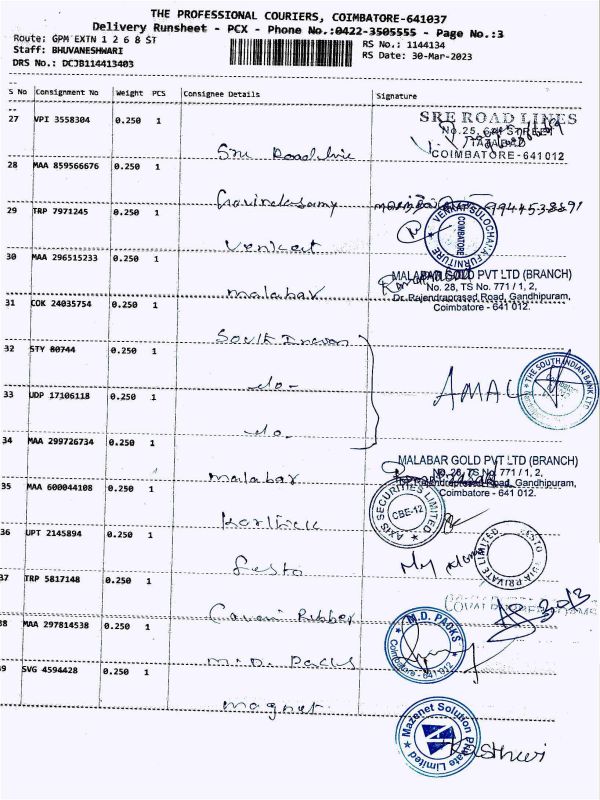 THE PROFESSIONAL COURIERS, COIMBATORE-641037
Delivery Runsheet - PCX - Phone No.:0422-3505555 - Page No.:3
Route: GPM EXTN 1 2 6 8 ST
RS No.: 1144134
Staff: BHUVANESHWARI
RS Date: 30-Mar-2023
DRS No.: DCJB114413403
S No Consignment No Weight PCS Consignee Details Signature
27 VPI 3558304 0.250 1
SRE ROAD LINES
No.25, 6TH STREET
TATABAD
COIMBATORE-641 012
Sre Roadline
28 MAA 859566676 0.250 1
Govindasamy
9944538891
29 TRP 7971245 0.250 1
VENKAT SULOCHANA FURNITURE
COIMBATORE
Venkat
30 MAA 296515233 0.250 1
MALABAR GOLD PVT LTD (BRANCH)
No. 28, TS No. 771 / 1, 2,
Dr. Rajendraprasad Road, Gandhipuram,
Coimbatore - 641 012.
malabar
31 COK 24035754 0.250 1
South Indian
32 STY 80744 0.250 1
THE SOUTH INDIAN BANK LTD
AMAL
-do-
33 UDP 17106118 0.250 1
-do-
34 MAA 299726734 0.250 1
MALABAR GOLD PVT LTD (BRANCH)
No. 28, TS No. 771 / 1, 2,
Dr. Rajendraprasad Road, Gandhipuram,
Coimbatore - 641 012.
malabar
35 MAA 600044108 0.250 1
AXIS SECURITIES LIMITED
CBE-12
Karthick
36 UPT 2145894 0.250 1
FESTO INDIA PRIVATE LIMITED
Festo
37 TRP 5817148 0.250 1
Covai Rubber
38 MAA 297814538 0.250 1
M.D. PACKS
Coimbatore - 641 012
M.D. Packs
39 SVG 4594428 0.250 1
Mazenet Solution Private Limited
magnet
Kasthuri